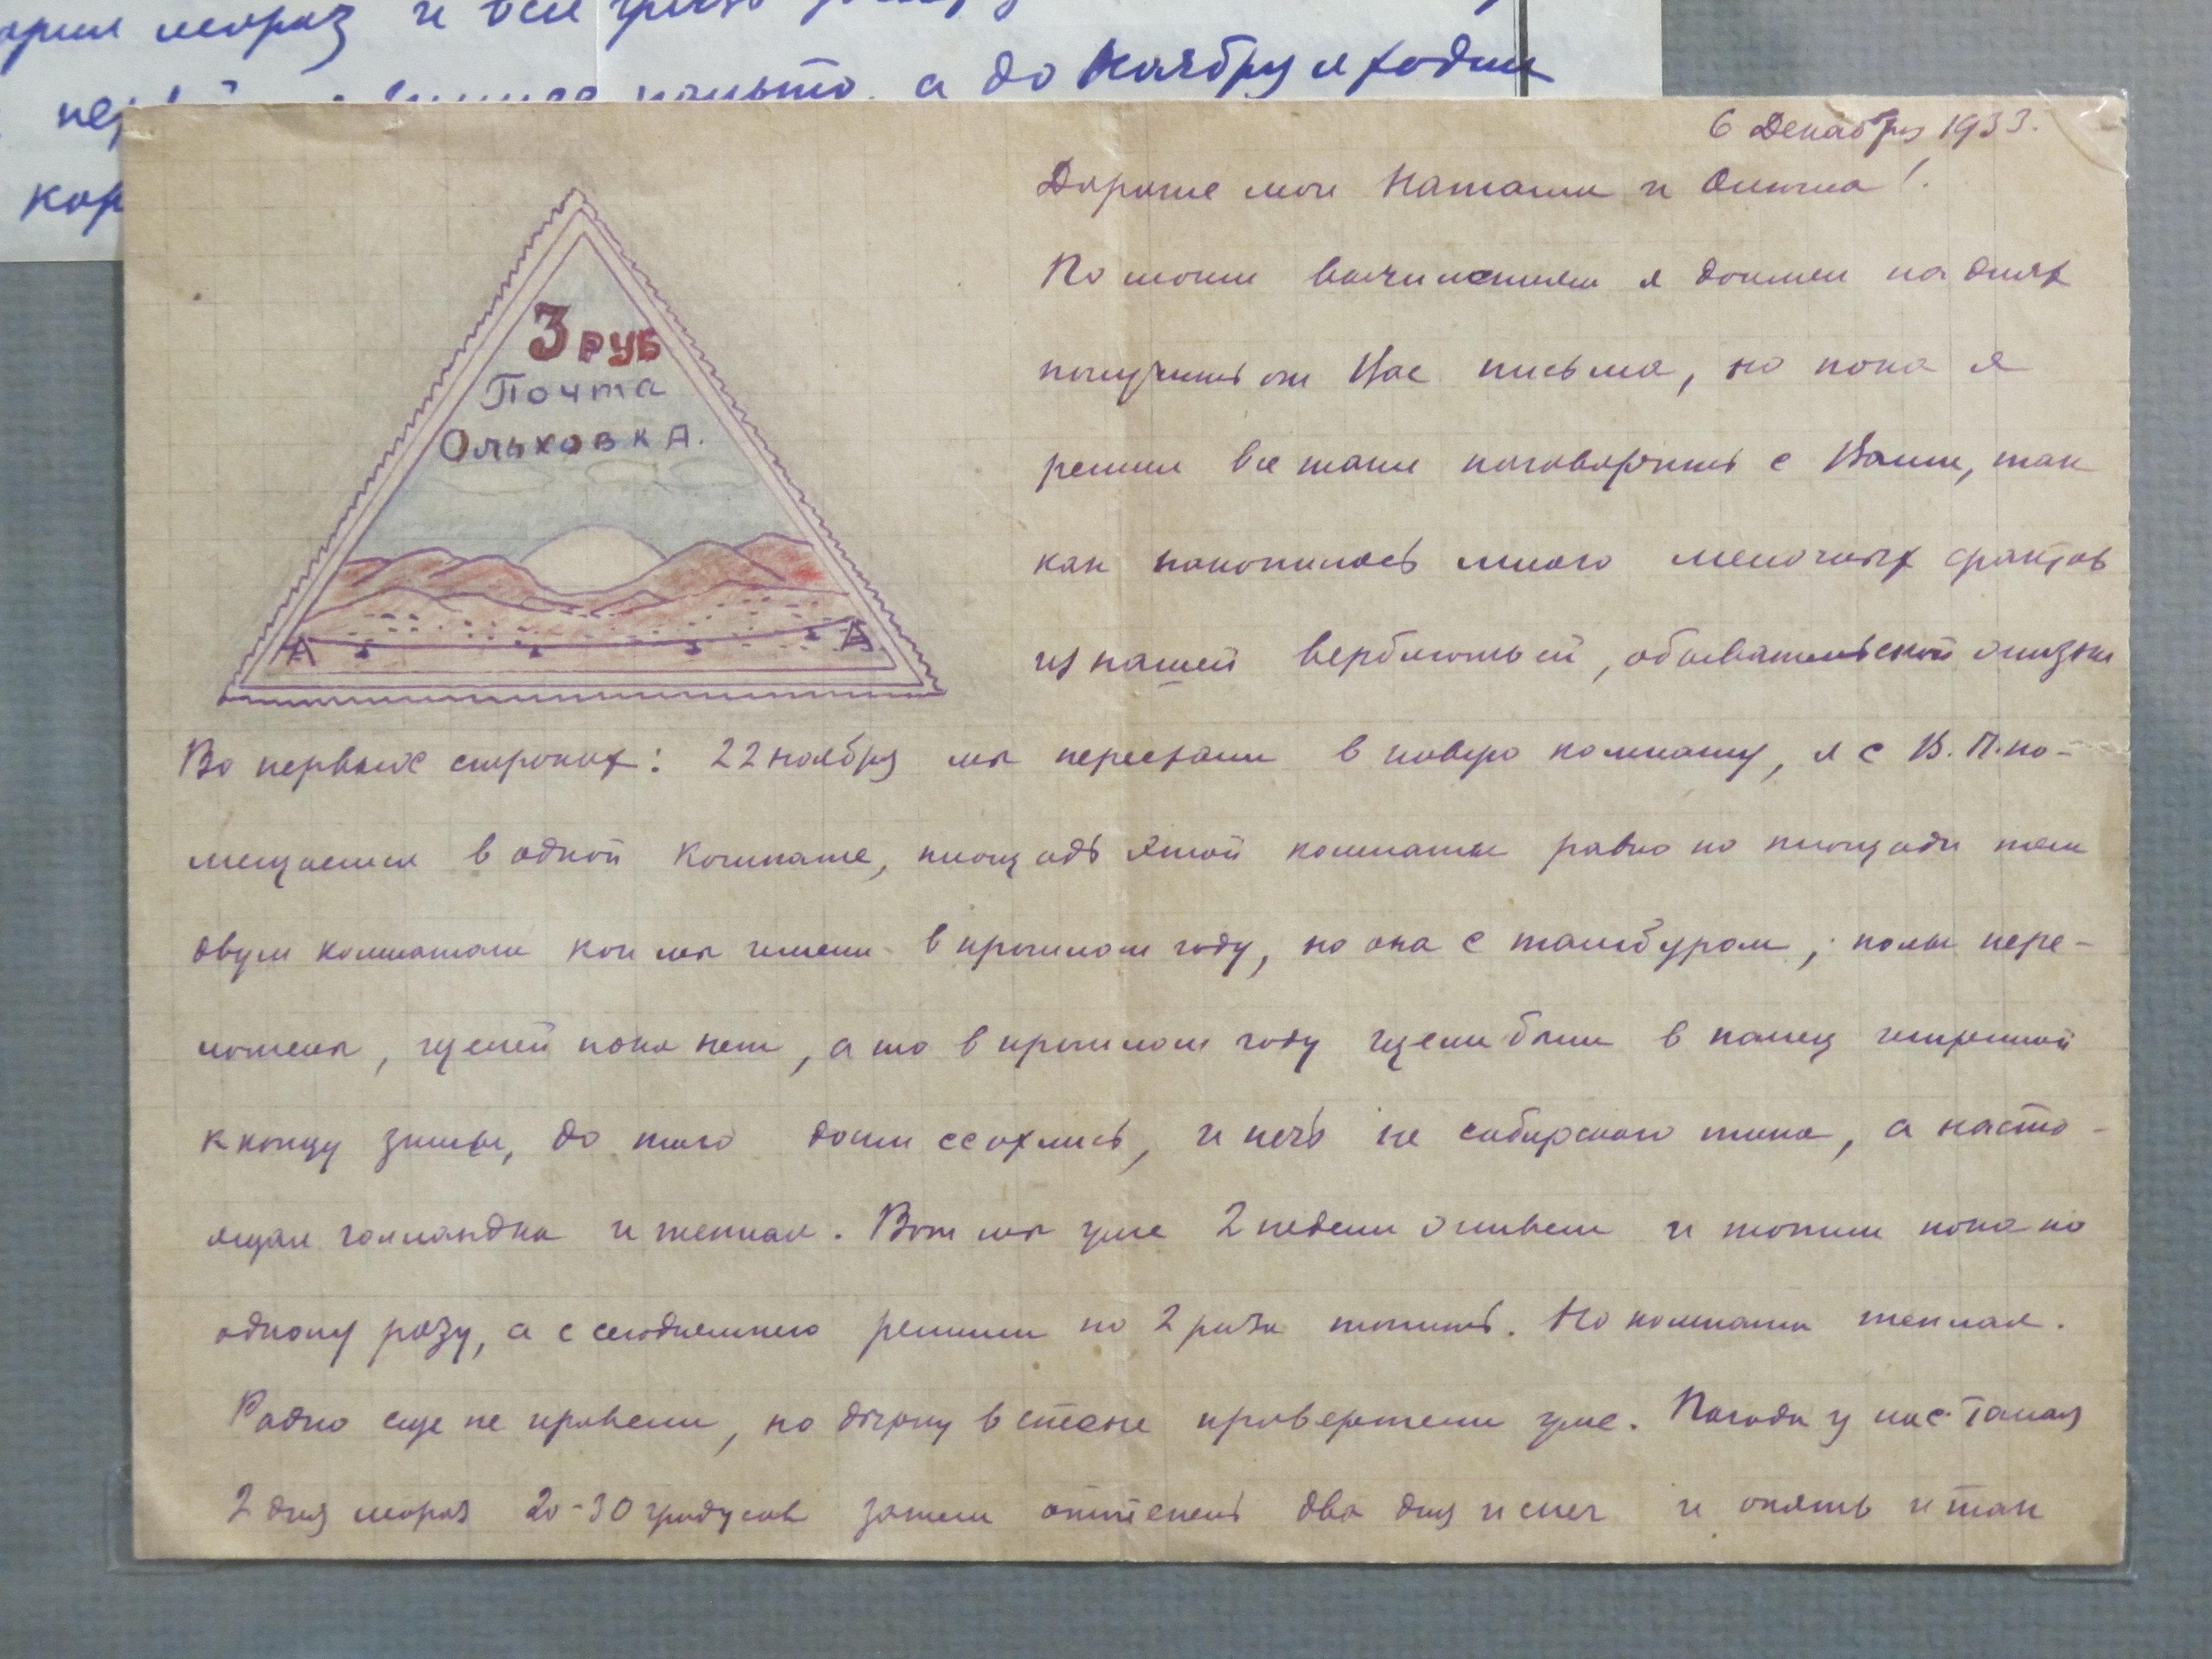 мороз и вся грязь
пальто, а до Ноября я ходил
кор
6 Декабря 1933.
Дорогие мои Наташа и Олюша!
3 РУБ
Почта
Ольховка.
А А
По моим вычислениям я должен на днях
получить от Вас письма, но пока я
решил все таки поговорить с Вами, так
как накопилось много мелочных фактов
из нашей верблюжьей, обывательской жизни
Во первых строках: 22 ноября мы переехали в новую комнату, я с В. П. по-
мещаемся в одной комнате, площадь этой комнаты равна по площади тем
двум комнатам кои мы имели в прошлом году, но она с тамбуром, полы пере-
ложены, щелей пока нет, а то в прошлом году щели были в палец шириной
к концу зимы, до того доски ссохлись, и печь не сибирского типа, а насто-
ящая голландка и теплая. Вот мы уже 2 недели живем и топим пока по
одному разу, а с сегодняшнего решили по 2 раза топить. Но комната теплая.
Радио еще не провели, но дырку в стене провертели уже. Погода у нас такая
2 дня мороз 20-30 градусов затем оттепель два дня и снег и опять и так